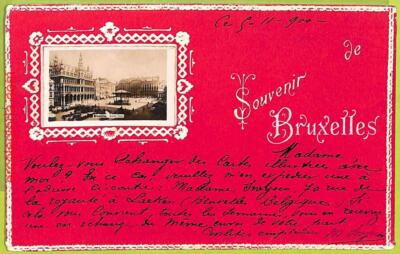 Ce 5-11-900-
Souvenir
de
Bruxelles
Madame,
Voulez-vous échanger des cartes illustrées avec
moi? En ce cas, veuillez m'en expédier une à
l'adresse ci-contre: Madame 70 rue de
la royauté à Laeken (Bruxelles Belgique) Si
cela vous convient, toutes les semaines, vous en recevrez
une en échange de même envoi de votre part